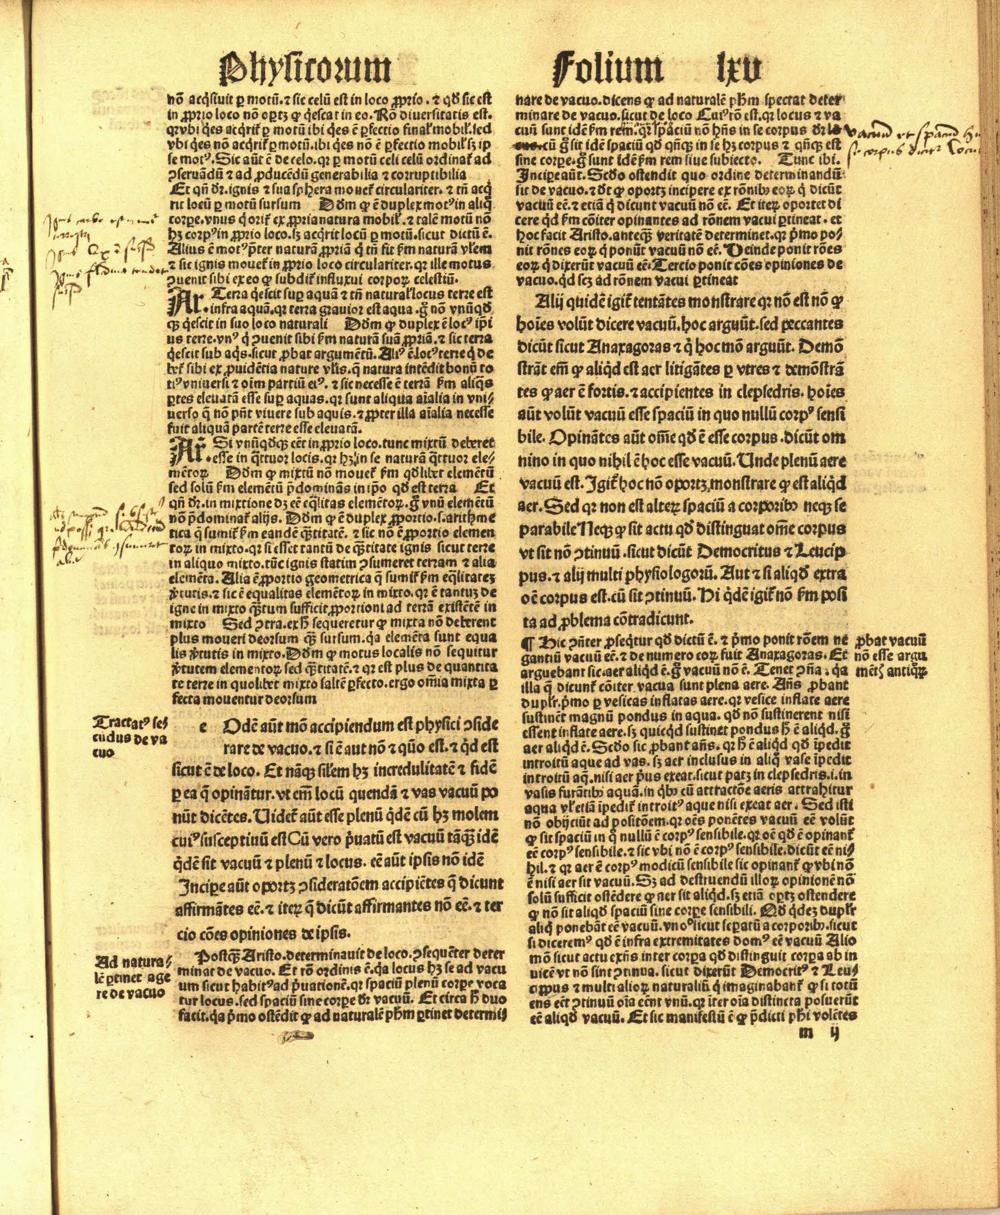 Physicorum
Folium lxv
nō acq̄siuit ꝑ motū. ⁊ sic celū est in loco ꝓprio. ⁊ qđ sic est
in ꝓprio loco nō oportꝫ ꝙ q̄escat in eo. Rō diuersitatis est.
qꝛ vbi q̄es acq̄rit̄ ꝑ motū ibi q̄es ē ꝑfectio final' mobil'. sed
vbi q̄es nō acq̄rit̄ ꝑ motū. ibi q̄es nō ē ꝑfectio mobil' sꝫ ip
se motꝰ. Sic aūt ē de celo. qꝛ ꝑ motū celi celū ordinat̄ ad
ꝯseruādū ⁊ ad ꝓducēdū generabilia ⁊ corruptibilia
Et qn̄ dr̄. ignis ⁊ sua sphera mouet̄ circulariter. ⁊ tn̄ acq̄
rit locū ꝑ motū sursum Dōm ꝙ ē duplex motꝰ in aliq̄
corꝑe. vnus q̄ orit̄ ex ꝓpria natura mobil'. ⁊ talē motū nō
hꝫ corpꝰ in ꝓprio loco. sꝫ acq̄rit locū ꝑ motū. sicut dictū ē.
Alius ē motꝰ p̄ter naturā ꝓpriā q̄ tn̄ sit ẜm naturā vl'em
⁊ sic ignis mouet̄ in ꝓprio loco circulariter. qꝛ ille motus
ꝯuenit sibi ex eo ꝙ subdit̄ influxui corpoꝝ celestiū.
Ar. Terra q̄escit suꝑ aquā ⁊ tn̄ natural' locus terre est
infra aquā. qꝛ terra grauior est aqua. g̊ nō vnūqđ
qꝫ q̄escit in suo loco naturali Dōm ꝙ duplex ē locꝰ ip̄i
us terre. vnꝰ q̄ ꝯuenit sibi ẜm naturā suā ꝓpriā. ⁊ sic terra
q̄escit sub aq̄s. sicut ꝓbat argumētū. Aliꝰ ē locꝰ terre q̄ de
bet̄ sibi ex ꝓuidētia nature vl'is. q̄ natura intēdit bonū to
tiꝰ vniuersi ⁊ oīm partiū eiꝰ. ⁊ sic necesse ē terrā ẜm aliq̄s
ꝑtes eleuatā esse suꝑ aquas. qꝛ sunt aliqua aīalia in vni⸗
uerso q̄ nō pn̄t viuere sub aquis. ⁊ ꝓpter illa aīalia necesse
fuit aliquā partē terre esse eleuatā.
Ar. Si vnūqđqꝫ eēt in ꝓprio loco. tunc mixtū deberet
esse in q̄ttuor locis. qꝛ hꝫ in se naturā q̄ttuor ele⸗
mētoꝝ Dōm ꝙ mixtū nō mouet̄ ẜm qđlibet elemētū
sed solū ẜm elemētū p̄dominās in ip̄o qđ est terra Et
qn̄ dr̄. in mixtione dꝫ eē eq̄litas elemētoꝝ. g̊ vnū elemētū
nō p̄dominat̄ alijs. Dōm ꝙ ē duplex ꝓportio. s. arithme
tica q̄ sumit̄ ẜm eandē q̄ntitatē. ⁊ sic nō ē ꝓportio elemen
toꝝ in mixto. qꝛ si esset tantū de q̄ntitate ignis sicut terre
in aliquo mixto. tūc ignis statim ꝯsumeret terram ⁊ alia
elemēta. Alia ē ꝓportio geometrica q̄ sumit̄ ẜm eq̄litatē
v̄tutis. ⁊ sic ē equalitas elemētoꝝ in mixto. qꝛ ē tantū de
igne in mixto q̄ntum sufficit ꝓportioni ad terrā existētē in
mixto Sed ꝯtra. ex ħ sequeretur ꝙ mixta nō deberent
plus moueri deorsum q̄ꝫ sursum. qꝛ elemēta sunt equa
lis v̄tutis in mixto. Dōm ꝙ motus localis nō sequitur
v̄tutem elementoꝝ sed q̄ntitatē. ⁊ qꝛ est plus de quantita
te terre in quolibet mixto saltē ꝑfecto. ergo oīa mixta ꝑ
fecta mouentur deorsum
Tractatꝰ se⸗
cūdus de va
cuo
e Odē aūt mō accipiendum est physici ꝯside
rare de vacuo. ⁊ si ē aut nō ⁊ q̄uo est. ⁊ q̄d est
sicut ē de loco. Et nāqꝫ sil'em hꝫ incredulitatē ⁊ fidē
ꝑ ea q̄ opināntur. vt em̄ locū quendā ⁊ vas vacuū po
nūt dicētes. Uidet̄ aūt esse plenū q̄dē cū hꝫ molem
cuiꝰ susceptiuū est Cū vero p̄uatū est vacuū tāq̄ꝫ idē
q̄dē sit vacuū ⁊ plenū ⁊ locus. eē aūt ipsis nō idē
Incipe aūt oportꝫ ꝯsideratōem accipiētes q̄ dicunt
affirmātes eē. ⁊ iteꝝ q̄ dicūt affirmantes nō eē. ⁊ ter
cio cōes opiniones de ipsis.
Ad natura⸗
lē ꝑtinet age
re de vacuo
Postq̄ꝫ Aristo. determinauit de loco. ꝯsequēter deter
minat de vacuo. Et rō ordinis ē. qꝛ locus hꝫ se ad vacu
um sicut habitꝰ ad p̄uationē. qꝛ spaciū plenū corꝑe voca
tur locus. sed spaciū sine corꝑe dr̄ vacuū. Et circa ħ duo
facit. qꝛ p̄mo ostēdit ꝙ ad naturalē phm̄ ꝑtinet determi⸗
nare de vacuo. dicens ꝙ ad naturalē phm̄ spectat deter
minare de vacuo. sicut de loco Cuiꝰ rō est. qꝛ locus ⁊ va
cuū sunt idē ẜm rem. qꝛ spaciū nō hn̄s in se corpus dr̄
cū g̊ sit idē spaciū qđ qn̄qꝫ in se hꝫ corpus ⁊ qn̄qꝫ est
sine corꝑe. g̊ sunt idē ẜm rem siue subiecto. Tunc ibi.
Incipe aūt. Scđo ostendit quo ordine determinandū
sit de vacuo. ⁊ dt̄ ꝙ oportꝫ incipere ex rōnibꝰ eoꝝ q̄ dicūt
vacuū eē. ⁊ etiā q̄ dicunt vacuū nō eē. Et iteꝝ oportet di
cere qđ ẜm cōiter opinantes ad rōnem vacui ꝑtineat. ⁊
hoc facit Aristo. anteq̄ꝫ veritatē determinet. qꝛ p̄mo po⸗
nit rōnes eoꝝ q̄ ponūt vacuū nō eē. Deinde ponit rōes
eoꝝ q̄ dixerūt vacuū eē. Tercio ponit cōes opiniones de
vacuo. qđ scꝫ ad rōnem vacui ꝑtineat
Alij quidē igit̄ tentātes monstrare qꝛ nō est nō ꝙ
hoīes volūt dicere vacuū. hoc arguūt. sed peccantes
dicūt sicut Anaxagoras ⁊ q̄ hoc mō arguūt. Demō
strāt em̄ ꝙ aliqđ est aer litigātes ꝑ vtres ⁊ demōstrā
tes ꝙ aer ē fortis. ⁊ accipientes in clepsedris. hoīes
aūt volūt vacuū esse spaciū in quo nullū corpꝰ sensi
bile. Opinātes aūt om̄e qđ ē esse corpus. dicūt om
nino in quo nihil ē hoc esse vacuū. Unde plenū aere
vacuū est. Igit̄ hoc nō oportꝫ monstrare ꝙ est aliqđ
aer. Sed qꝛ non est alteꝝ spaciū a corporibꝰ neqꝫ se
parabile Neqꝫ ꝙ sit actu qđ distinguat om̄e corpus
vt sit nō ꝯtinuū. sicut dicūt Democritus ⁊ Leucip
pus. ⁊ alij multi physiologorū. Aut ⁊ si aliqđ extra
oē corpus est. cū sit ꝯtinuū. Hi q̄dē igit̄ nō ẜm posi
ta ad ꝓblema cōtradicunt.
¶ Hic ꝯn̄ter ꝓseq̄tur qđ dictū ē. ⁊ p̄mo ponit rōem ne
gantiū vacuū eē. ⁊ de numero eoꝝ fuit Anaxagoras. Et
arguebant sic. aer aliqđ ē. g̊ vacuū nō ē. Tenet ꝯn̄a. qꝛ
illa q̄ dicunt̄ cōiter vacua sunt plena aere. Ans̄ ꝓbant
duplr̄. p̄mo ꝑ vesicas inflatas aere. qꝛ vesice inflate aere
sustinēt magnū pondus in aqua. qđ nō sustinerent nisi
essent inflate aere. sꝫ quicq̄d sustinet pondus ħ ē aliqđ. g̊
aer aliqđ ē. Scđo sic ꝓbant ans̄. qꝛ ħ ē aliqđ qđ īpedit
introitū aque ad vas. sꝫ aer inclusus in aliq̄ vase īpedit
introitū aq̄. nisi aer p̄us exeat. sicut patꝫ in clepsedris. i. in
vasis furātibꝰ aquā. in q̄bꝰ cū attractōe aeris attrahitur
aqua vl' etiā īpedit̄ introitꝰ aque nisi exeat aer. Sed isti
nō obijciūt ad positōem. qꝛ oēs ponētes vacuū eē volūt
ꝙ sit spaciū in q̄ nullū ē corpꝰ sensibile. qꝛ oē qđ ē opinant̄
eē corpꝰ sensibile. ⁊ sic vbi nō ē corpꝰ sensibile. dicūt eē ni⸗
hil. ⁊ qꝛ aer ē corpꝰ modicū sensibile sic opinant̄ ꝙ vbi nō
ē nisi aer sit vacuū. Sꝫ ad destruendū illoꝝ opinionē nō
solū sufficit ostēdere ꝙ aer sit aliqđ. sꝫ etiā oꝑtꝫ ostendere
ꝙ nō sit aliqđ spaciū sine corꝑe sensibili. Qđ q̄deꝫ duplr̄
aliq̄ ponebāt eē vacuū. vno° sicut seꝑatū a corporibꝰ. sicut
si diceremꝰ qđ ē infra extremitates domꝰ eē vacuū Alio
mō sicut actu exn̄s inter corꝑa qđ distinguit corꝑa ab in
uicē vt nō sint ꝯtinua. sicut dixerūt Democritꝰ ⁊ Leu⸗
cippus ⁊ multi alioꝝ naturaliū q̄ imaginabant̄ ꝙ si totū
ens eēt ꝯtinuū oīa eēnt vnū. qꝛ īter oīa distincta posuerūt
eē aliqđ vacuū. Et sic manifestū ē ꝙ p̄dicti phi volētes
ꝓbat vacuū
nō esse argu
mētꝫ antiq̄ꝝ
m ij